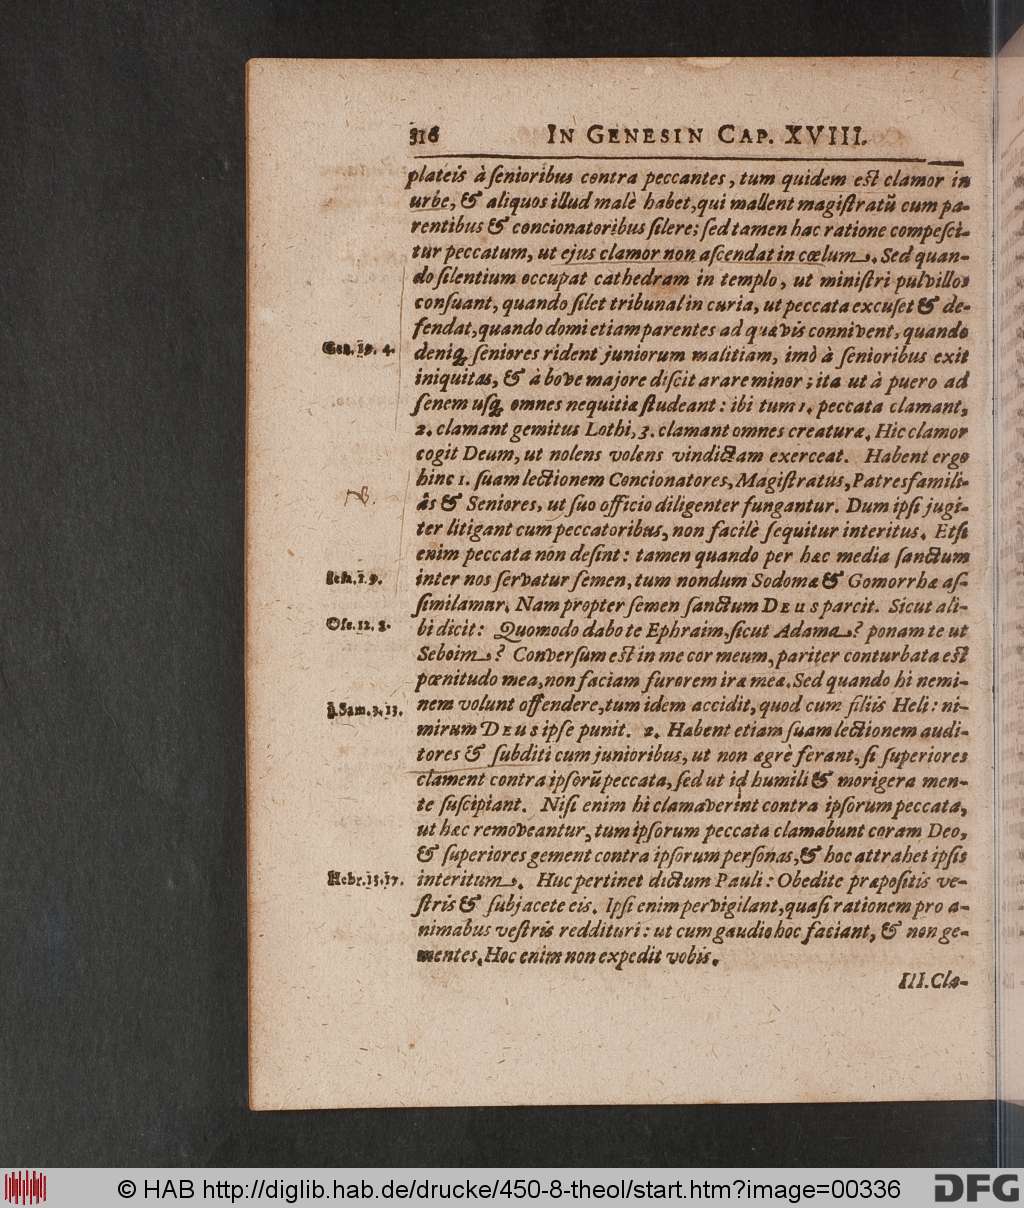 316 IN GENESIN CAP. XVIII.
plateis à ſenioribus contra peccantes, tum quidem eſt clamor in
urbe, & aliquos illud malè habet, qui mallent magiſtratū cum pa-
rentibus & concionatoribus ſilere; ſed tamen hac ratione compeſci-
tur peccatum, ut ejus clamor non aſcendat in cœlum. Sed quan-
do ſilentium occupat cathedram in templo, ut miniſtri pulvillos
conſuant, quando ſilet tribunal in curia, ut peccata excuſet & de-
fendat, quando domi etiam parentes ad quævis connivent, quando
Gen. 19. 4.
deniq; ſeniores rident juniorum malitiam, imò à ſenioribus exit
iniquitas, & à bove majore diſcit arare minor; ita ut à puero ad
ſenem uſq; omnes nequitiæ ſtudeant: ibi tum 1. peccata clamant,
2. clamant gemitus Lothi, 3. clamant omnes creaturæ. Hic clamor
cogit Deum, ut nolens volens vindictam exerceat. Habent ergo
hinc 1. ſuam lectionem Concionatores, Magiſtratus, Patresfamili-
âs & Seniores, ut ſuo officio diligenter fungantur. Dum ipſi jugi-
ter litigant cum peccatoribus, non facilè ſequitur interitus. Etſi
enim peccata non deſint: tamen quando per hæc media ſanctum
Jeſa. 1. 9.
inter nos ſervatur ſemen, tum nondum Sodomæ & Gomorrhæ aſ-
ſimilamur. Nam propter ſemen ſanctum DEUS parcit. Sicut ali-
Oſe. 12. 8.
bi dicit: Quomodo dabo te Ephraim, ſicut Adama? ponam te ut
Seboim? Converſum eſt in me cor meum, pariter conturbata eſt
pœnitudo mea, non faciam furorem iræ meæ. Sed quando hi nemi-
1. Sam. 3. 13.
nem volunt offendere, tum idem accidit, quod cum filiis Heli: ni-
mirum DEUS ipſe punit. 2. Habent etiam ſuam lectionem audi-
tores & ſubditi cum junioribus, ut non ægrè ferant, ſi ſuperiores
clament contra ipſorū peccata, ſed ut id humili & morigera men-
te ſuſcipiant. Niſi enim hi clamaverint contra ipſorum peccata,
ut hæc removeantur, tum ipſorum peccata clamabunt coram Deo,
& ſuperiores gement contra ipſorum perſonas, & hoc attrahet ipſis
Hebr. 13. 17.
interitum. Huc pertinet dictum Pauli: Obedite præpoſitis ve-
ſtris & ſubjacete eis. Ipſi enim pervigilant, quaſi rationem pro a-
nimabus veſtris reddituri: ut cum gaudio hoc faciant, & non ge-
mentes. Hoc enim non expedit vobis.
III. Cla-
© HAB http://diglib.hab.de/drucke/450-8-theol/start.htm?image=00336
DFG